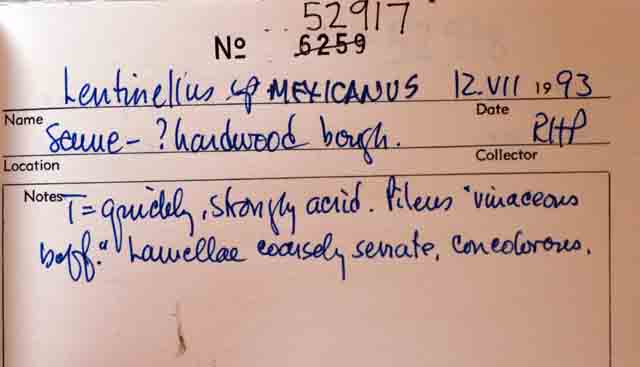 52917
Nº 6259
Lentinellus sp MEXICANUS 12.VII 1993
Name Date
Same - ? hardwood bough. RHP
Location Collector
Notes T = quickly, strongly acrid. Pileus "vinaceous
buff." Lamellae coarsely serrate, concolorous.